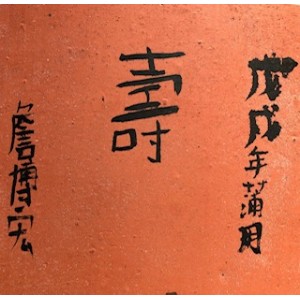 戊戌年蒲月
壽
詹博宏